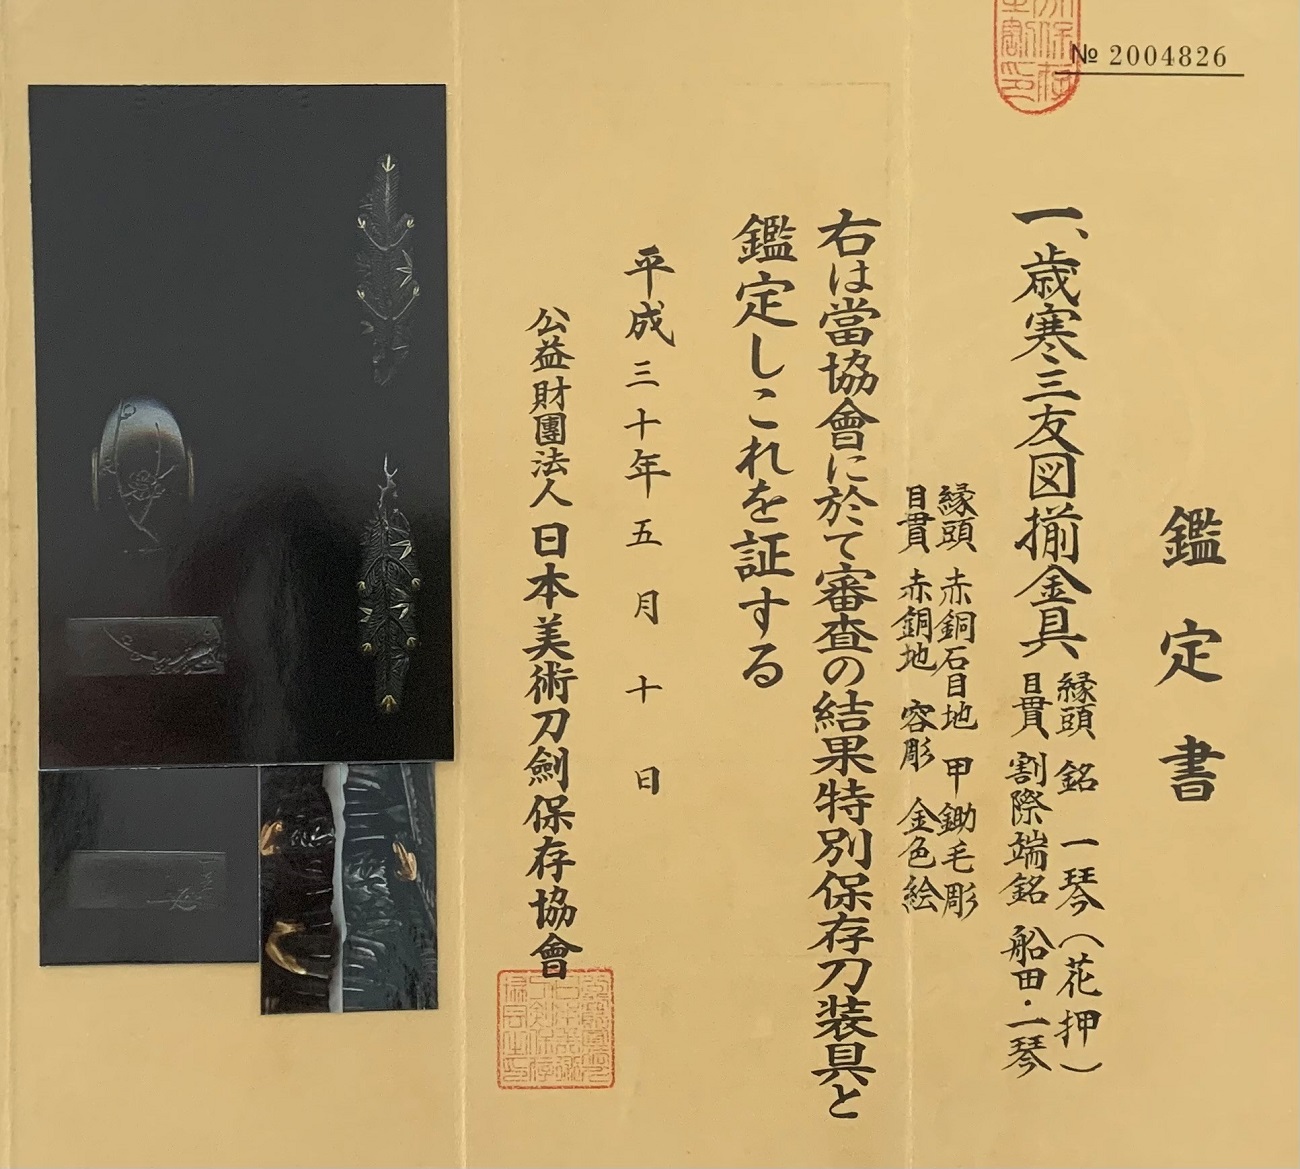 № 2004826
鑑定書
一、歳寒三友図揃金具
縁頭 銘 一琴(花押)
目貫 割際端銘 船田・一琴
縁頭 赤銅石目地 甲鋤毛彫
目貫 赤銅地 容彫 金色絵
右は當協會に於て審査の結果特別保存刀装具と
鑑定しこれを証する
平成三十年五月十日
公益財團法人 日本美術刀劍保存協會